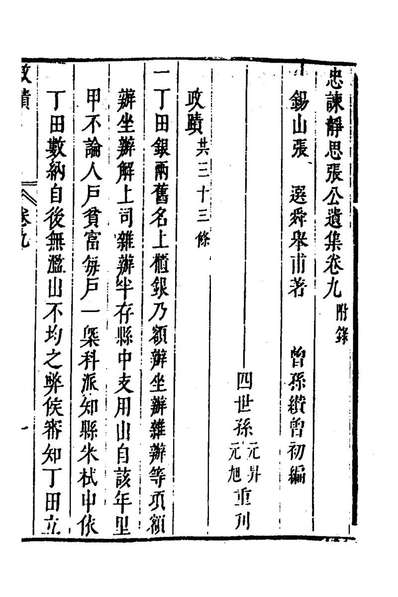 忠諫靜思張公遺集卷九 附錄
錫山張 選舜舉甫著 曾孫纘曾初編
四世孫 元昇 元旭 重刋
政蹟 共三十三條
一丁田銀兩舊名上櫃銀乃額辦坐辦雜辦等項額
辦坐辦解上司雜辦半存縣中支用山自該年里
甲不論人戶貧富每戶一槩科派知縣朱栻中依
丁田數納自後無濫山不均之弊侯審知丁田立
政蹟 卷九 一